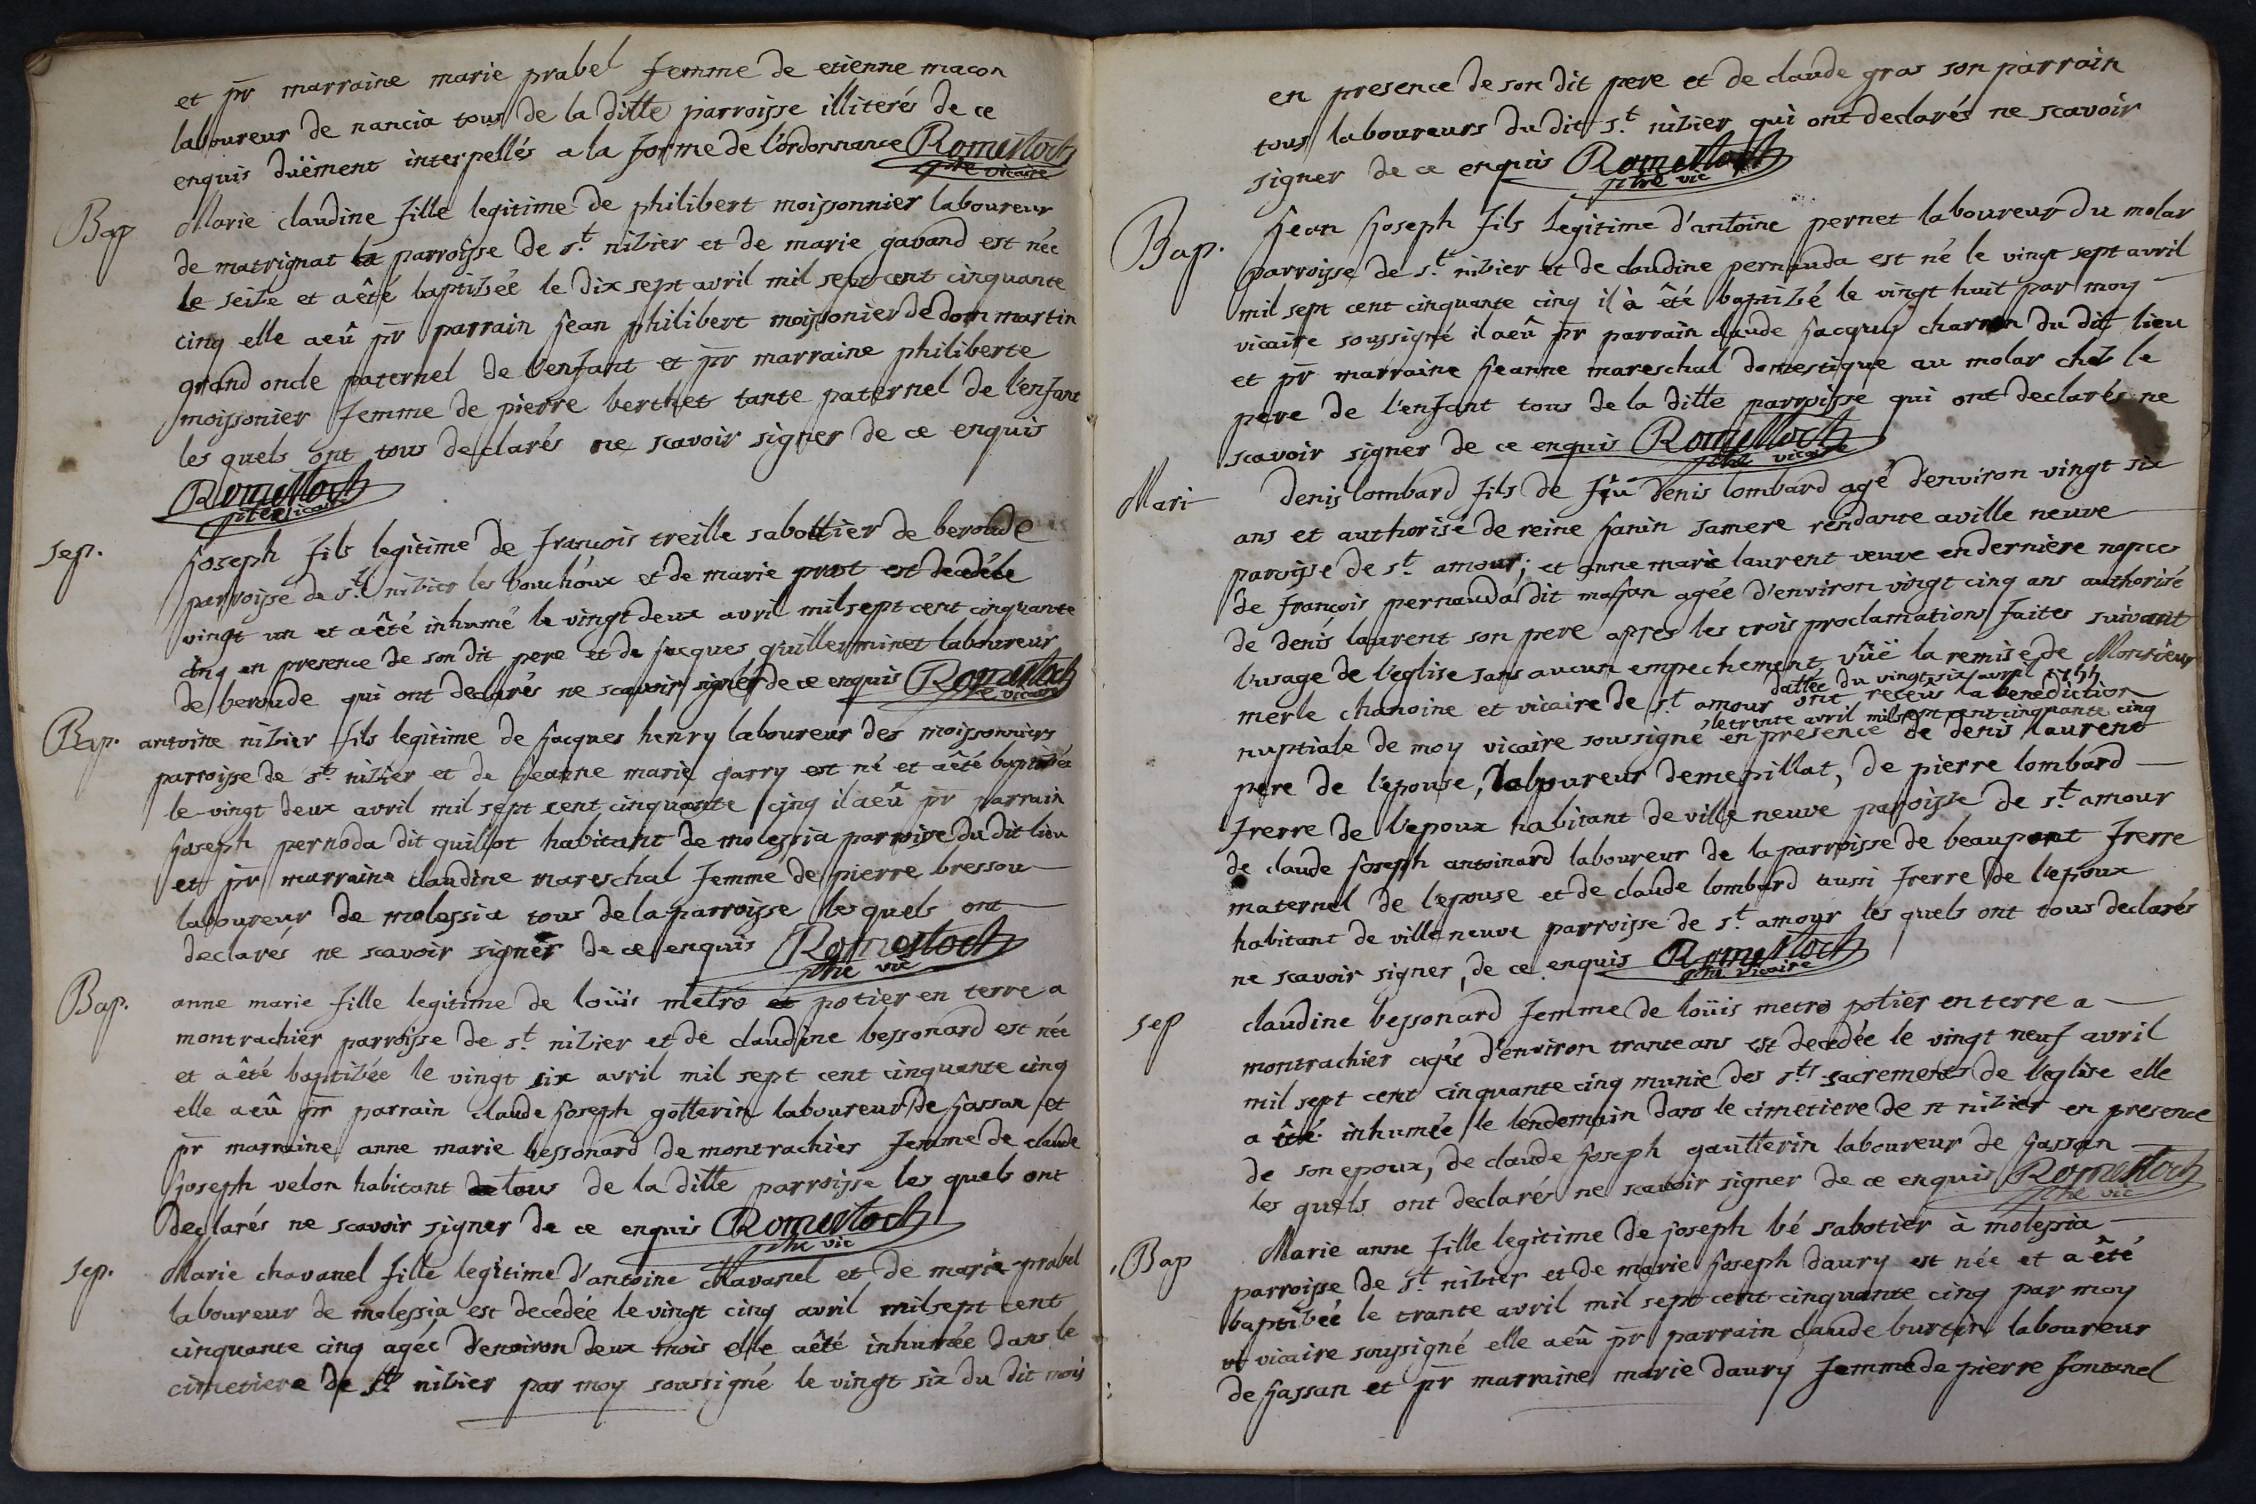 et pr marraine marie prabel femme de etienne macon
laboureur de nancia tous de la ditte parroisse illiterés de ce
enquis düement interpellés a la forme de l'ordonnance Romestoch
ptre vicaire
Bap Marie claudine fille legitime de philibert moissonnier laboureur
de matrignat la parroisse de st. nizier et de marie gavand est née
le seize et aêté baptizéé le dix sept avril mil sept cent cinquante
cinq elle aeû pr parrain jean philibert moissonier de dom martin
grand oncle paternel de l'enfant et pr marraine philiberte
moissonier femme de pierre berthet tante paternel de l'enfant
les quels ont tous declarés ne scavoir signer de ce enquis
Romestoch
ptre vicaire
sep. joseph fils legitime de francois treille sabottier de beroude
parroisse de st. nizier les bouchoux et de marie prost est decédé le
vingt un et aêté inhumé le vingt deux avril mil sept cent cinquante
cinq en presence de son dit pere et de jacques guilleminet laboureur
de beroude qui ont declarés ne scavoir signer de ce enquis Romestoch
ptre vicaire
Bap. antoine nizier fils legitime de jacques henry laboureur des moissonniers
parroisse de st. nizier et de jeanne marie garry est né et aêté baptizéé
le vingt deux avril mil sept cent cinquante cinq il aeû pr parrain
joseph pernoda dit guillot habitant de molessia parroisse du dit lieu
et pr marraine claudine mareschal femme de pierre bressou
laboureur de molessia tous de la parroisse les quels ont
declarés ne scavoir signer de ce enquis Romestoch
ptre vic
Bap. anne marie fille legitime de loüis metro et potier en terre a
montrachier parroisse de st. nizier et de claudine bessonard est née
et aêté baptizéé le vingt six avril mil sept cent cinquante cinq
elle aeû pr parrain claude joseph gotterin laboureur de jassan et
pr marraine anne marie bessonard de montrachier femme de claude
joseph velon habitant de tous de la ditte parroisse les quels ont
declarés ne scavoir signer de ce enquis Romestoch
ptre vic
sep. Marie chavanel fille legitime d'antoine chavanel et de marie prabel
laboureur de molessia est decedéé le vingt cinq avril mil sept cent
cinquante cinq agéé d'environ deux mois elle aêté inhuméé dans le
cimetiere de st. nizier par moy soussigné le vingt six du dit mois
en presence de son dit pere et de claude gras son parrain
tous laboureurs du dit st. nizier qui ont declarés ne scavoir
signer de ce enquis Romestoch
ptre vic
Bap. jean joseph fils legitime d'antoine pernet laboureur du molar
parroisse de st. nizier et de claudine pernauda est né le vingt sept avril
mil sept cent cinquante cinq il à êté baptizé le vingt huit par moy
vicaire soussigné il aeû pr parrain claude jacquy charron du dit lieu
et pr marraine jeanne mareschal domestique au molar chez le
pere de l'enfant tous de la ditte parroisse qui ont declarés ne
scavoir signer de ce enquis Romestoch
ptre vicaire
Mari denis lombard fils de fëu denis lombard agé d'environ vingt six
ans et authorisé de reine janin sa mere rendante a ville neuve
paroisse de st. amour; et anne marie laurent veuve en dernière nopces
de françois pernauda dit agée d'environ vingt cinq ans authorisé
de denis laurent son pere apres les trois proclamations faites suivant
l'usage de l'eglise sans aucun empechement vüë la remise de Monsieur
dattée du vingt six avril 1755
merle chanoine et vicaire de st. amour ont recëus la benediction
le trente avril mil sept cent cinquante cinq
nuptiale de moy vicaire soussigné en presence de denis laurent
pere de l'epouse, laboureur demepillat, de pierre lombard
frerre de l'epoux habitant de ville neuve paroisse de st. amour
de claude joseph antoinard laboureur de la parroisse de beaupont frerre
maternel de l'epouse et de claude lombard aussi frerre de l'epoux
habitant de ville neuve parroisse de st. amour les quels ont tous declarés
ne scavoir signer, de ce enquis Romestoch
ptre vicaire
sep claudine bessonard femme de loüis metro potier en terre a
montrachier agéé d'environ trante ans est decedée le vingt neuf avril
mil sept cent cinquante cinq munie des sts sacrements de l'eglise elle
a êté inhuméé le lendemain dans le cimetiere de st nizier en presence
de son epoux, de claude joseph gautterin laboureur de jassan
les quels ont declarés ne scavoir signer de ce enquis Romestoch
ptre vic
Bap Marie anne fille legitime de joseph bé sabotier à molessia
parroisse de st. nizier et de marie joseph daury est née et a êté
baptizéé le trante avril mil sept cent cinquante cinq par moy
vicaire soussigné elle aeû pr parrain claude burtin laboureur
de jassan et pr marraine marie daury femme de pierre fontanel